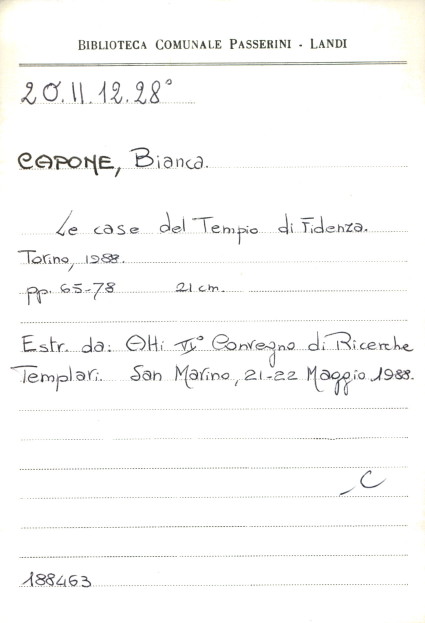 BIBLIOTECA COMUNALE PASSERINI - LANDI
20.II.12.28°
CAPONE, Bianca.
Le case del Tempio di Fidenza.
Torino, 1988.
pp. 65-78 21 cm.
Estr. da: Atti VI° Convegno di Ricerche
Templari. San Marino, 21-22 Maggio 1988.
C
188463